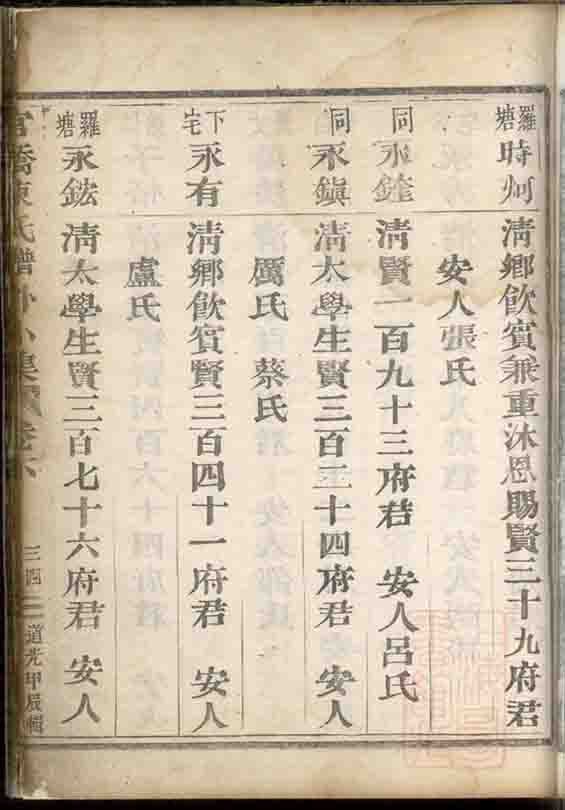 羅塘 時炯 清鄉飲賓兼重沐恩賜賢三十九府君
安人張氏
同 永鍷 清賢一百九十三府君 安人呂氏
同 永鎭 清太學生賢三百二十四府君 安人
厲氏 蔡氏
下宅 永有 清鄉飮賓賢三百四十一府君 安人
盧氏
羅塘 永鈜 清太學生賢三百七十六府君 安人
官橋陳氏譜外小集 卷六 三四二 道光甲辰輯